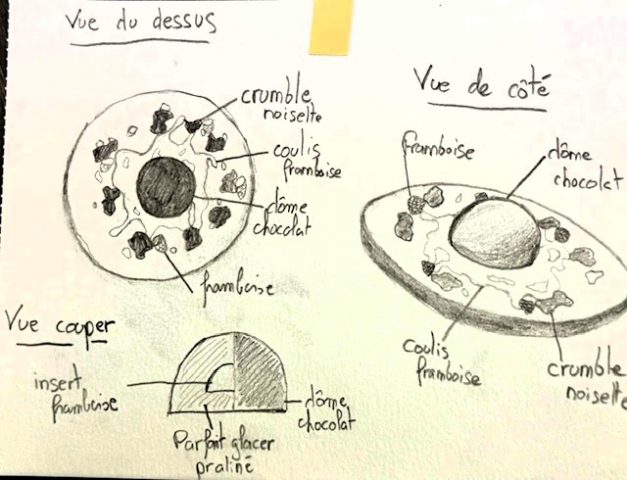 Vue du dessus
crumble
noisette
coulis
framboise
dôme
chocolat
framboise
Vue de côté
framboise
dôme
chocolat
coulis
framboise
crumble
noisette
Vue couper
insert
framboise
dôme
chocolat
Parfait glacer
praliné